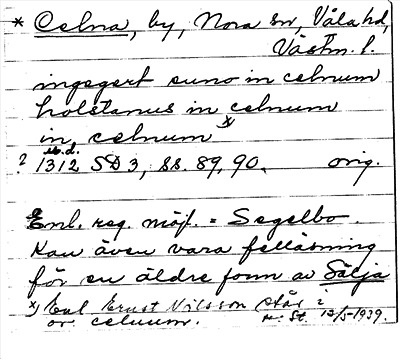 * Celna, by, Nora sn, Våla hd,
Västm. l.
ingegert suno in celnum
holstanus in celnum
in celnum x)
u.d.
? 1312 SD 3, ss. 89, 90. orig.
Enl. reg. möjl. = Segelbo.
Kan även vara felläsning
för en äldre form av Sälja
x) Enl Ernst Nilsson står i
or. celuum. 12/5-1939.